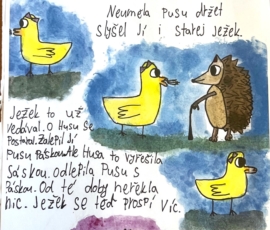 Neuměla pusu držet
slyšel jí i starej ježek.
Ježek to už
nedával. O husu se
Postaral. Zalepil jí
Pusu Páskou. Ale Husa to vyřešila
Sáskou. odlepila Pusu s
Páskou. Od té doby neřekla
nic. Ježek se teď prospí víc.